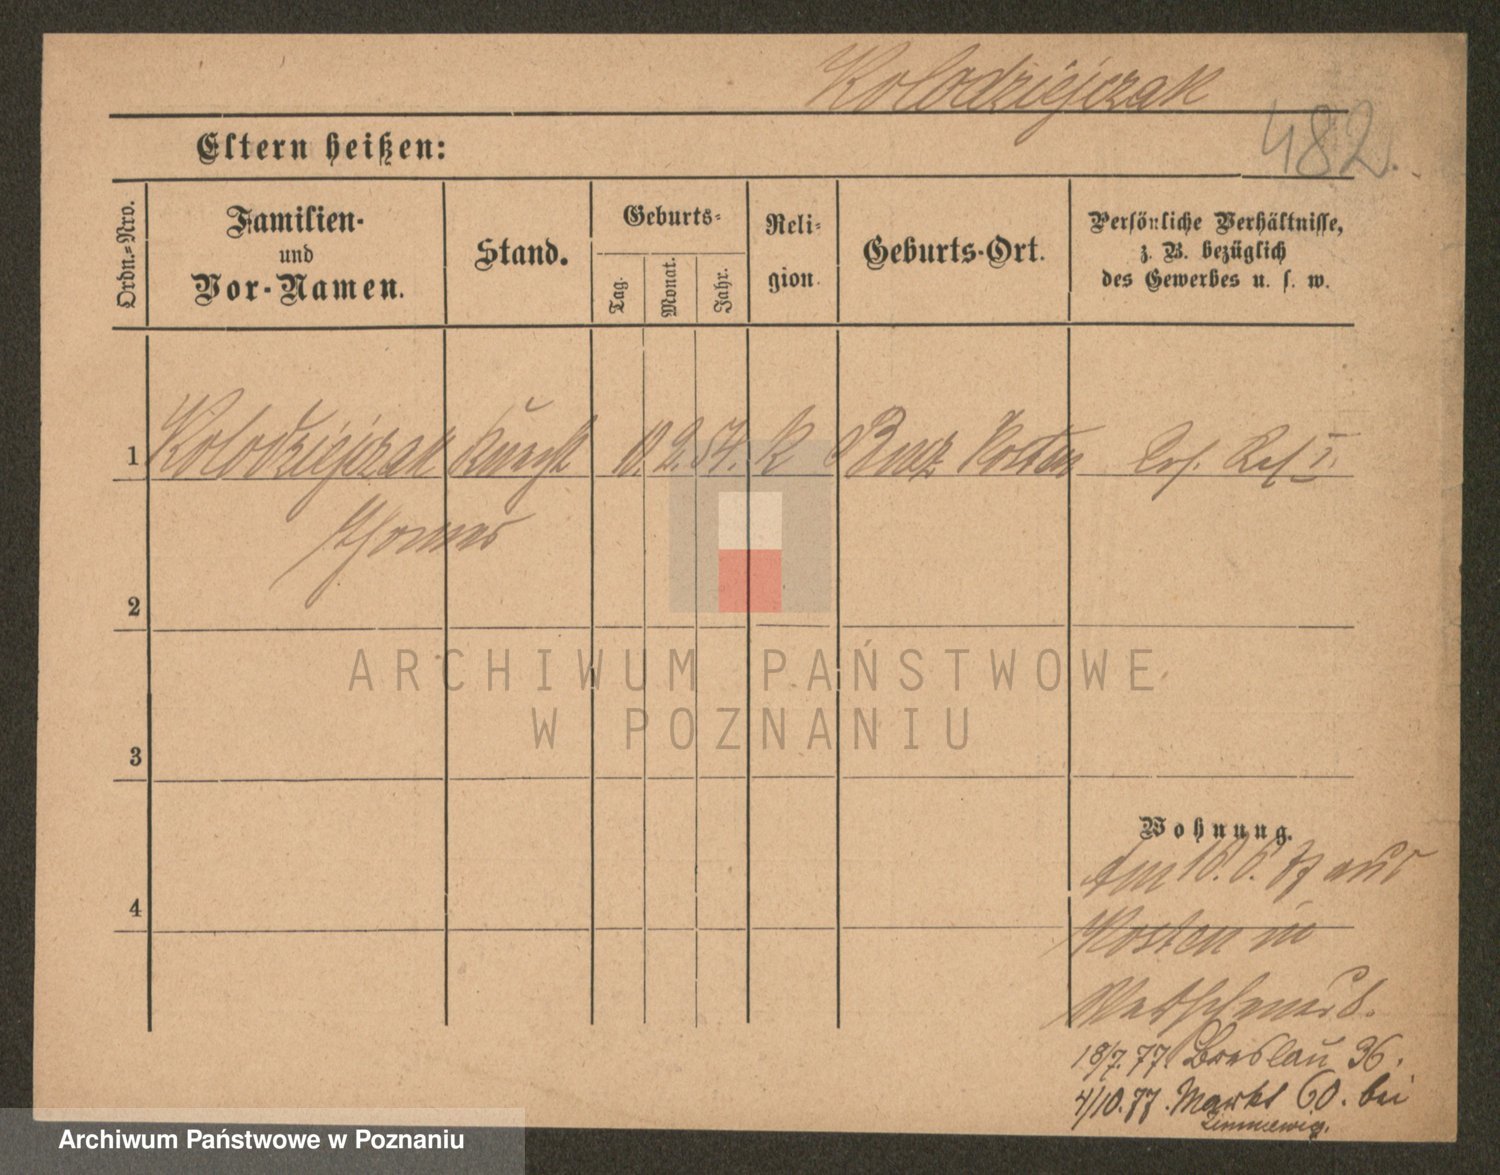 Kolodziejczak
482.
Eltern heißen:
Ordn.=Nro.
Familien-
und
Vor-Namen.
Stand.
Geburts=
Tag.
Monat.
Jahr.
Reli=
gion.
Geburts-Ort.
Persönliche Verhältnisse,
z. B. bezüglich
des Gewerbes u. s. w.
1 Kolodziejczak Knecht 10. 2. 54. K Kosten Ers. Res I.
Thomas
2
ARCHIWUM PAŃSTWOWE
W POZNANIU
3
Wohnung.
Am 16. 6. 77 aus
4
Kosten in
18/7. 77. Breslau 36.
4/10. 77. Markt 60. bei
Archiwum Państwowe w Poznaniu